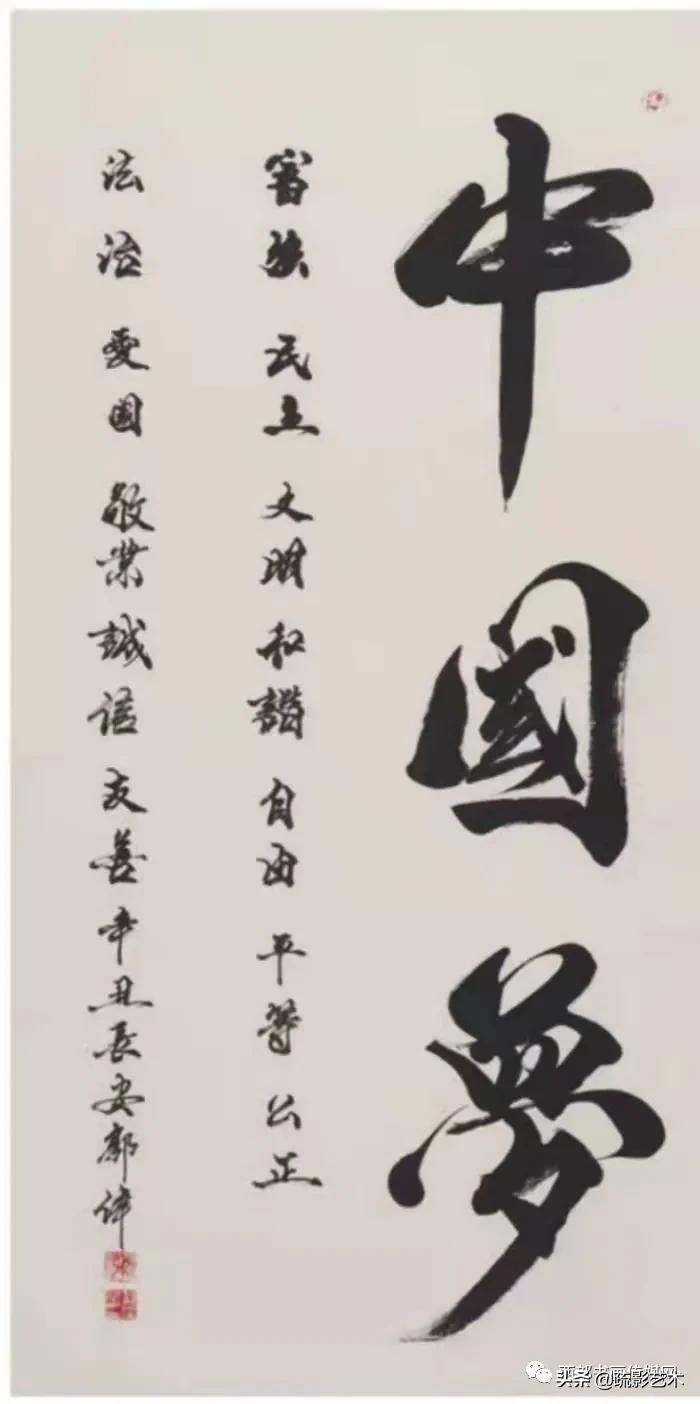 中國夢
富強 民主 文明 和諧 自由 平等 公正
法治 愛國 敬業 誠信 友善 辛丑長安郭偉
西部书画传媒网
头条 @疏影艺术